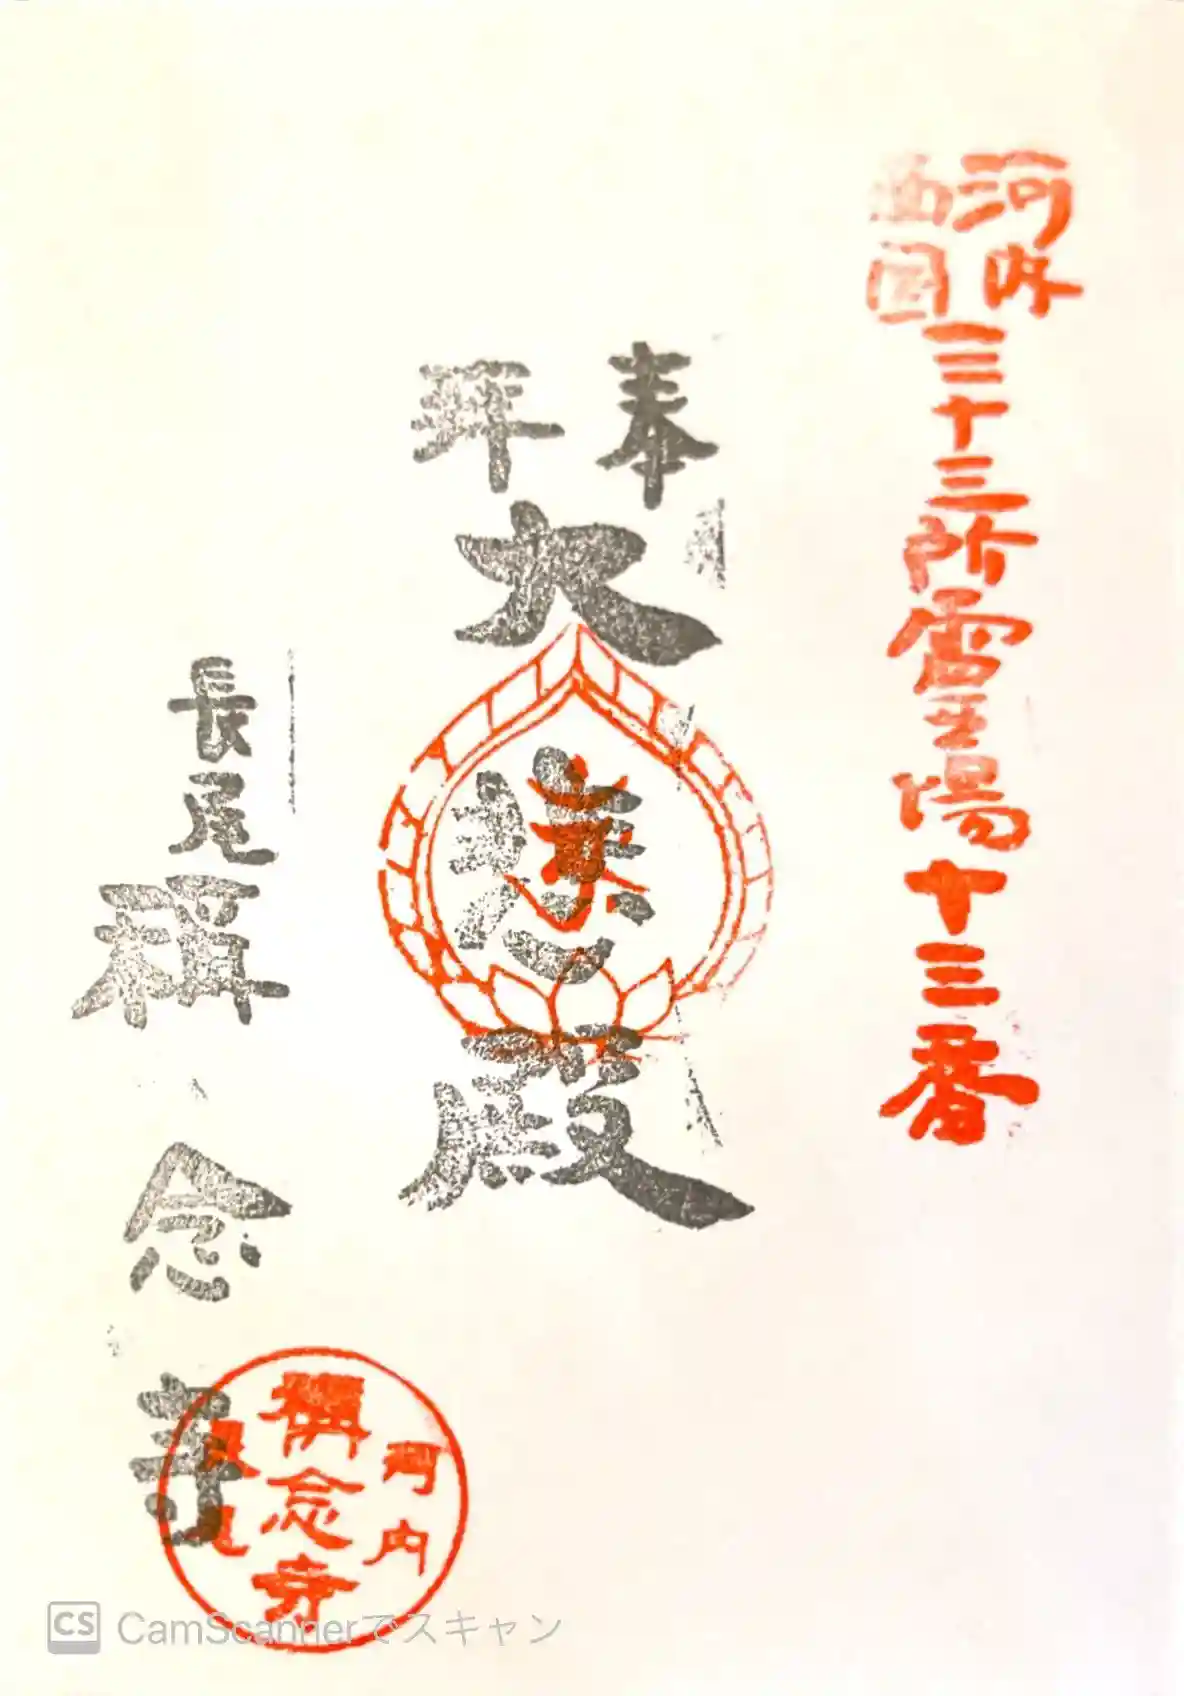 河内
西国
三十三所霊場十三番
奉
拝
大悲殿
長尾
稱念寺
河内
稱念寺
長尾
CS CamScannerでスキャン